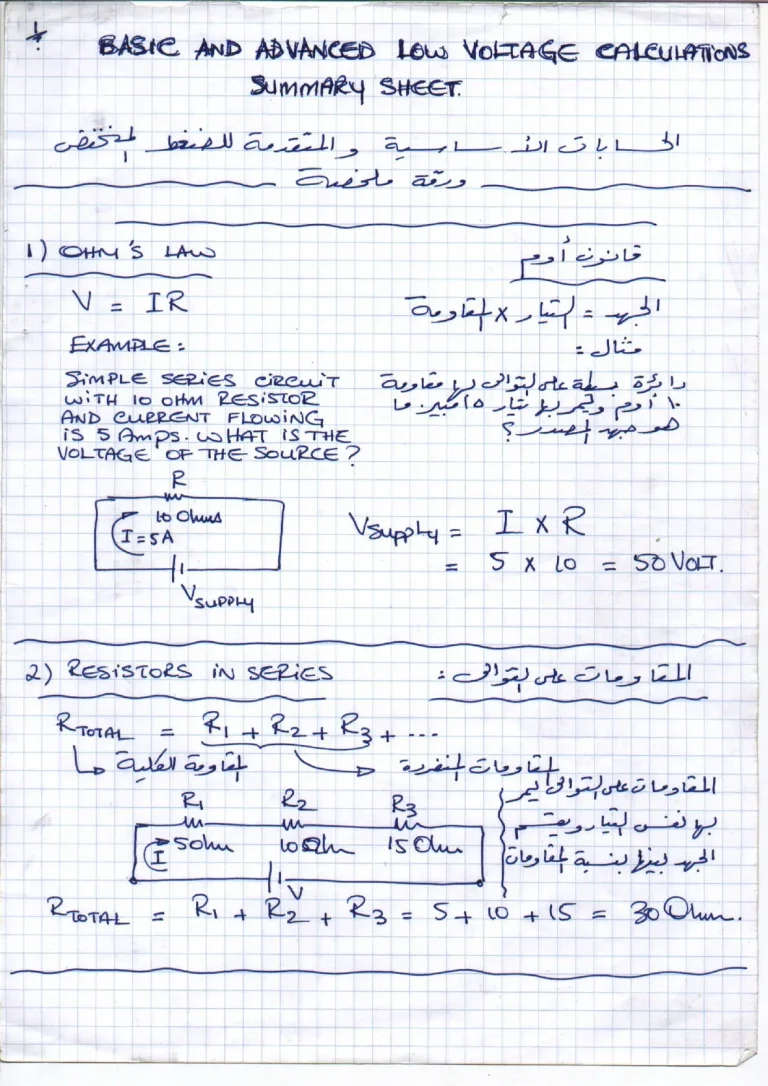 BASIC AND ADVANCED LOW VOLTAGE CALCULATIONS
SUMMARY SHEET.
الحسابات الأساسية والمتقدمة للضغط المنخفض
ورقة ملخصة
1) OHM'S LAW
قانون أوم
V = IR
الجهد = التيار x المقاومة
EXAMPLE:
مثال:
SIMPLE SERIES CIRCUIT
WITH 10 OHM RESISTOR
AND CURRENT FLOWING
IS 5 Amps. WHAT IS THE
VOLTAGE OF THE SOURCE?
دائرة بسيطة على التوالى لها مقاومة
١٠ أوم ويمر بها تيار ٥ أمبير. ما
هو جهد المصدر؟
R
10 Ohms
I = 5A
VSUPPLY
Vsupply = I x R
= 5 x 10 = 50 VOLT.
2) RESISTORS IN SERIES
المقاومات على التوالى:
RTOTAL = R1 + R2 + R3 + ...
المقاومة الكلية
المقاومات المنفردة
R1 R2 R3
5 ohm 10 Ohm 15 Ohm
I
V
المقاومات على التوالى يمر
بها نفس التيار ويقسم
الجهد بينها بنسبة المقاومات
RTOTAL = R1 + R2 + R3 = 5 + 10 + 15 = 30 Ohm.